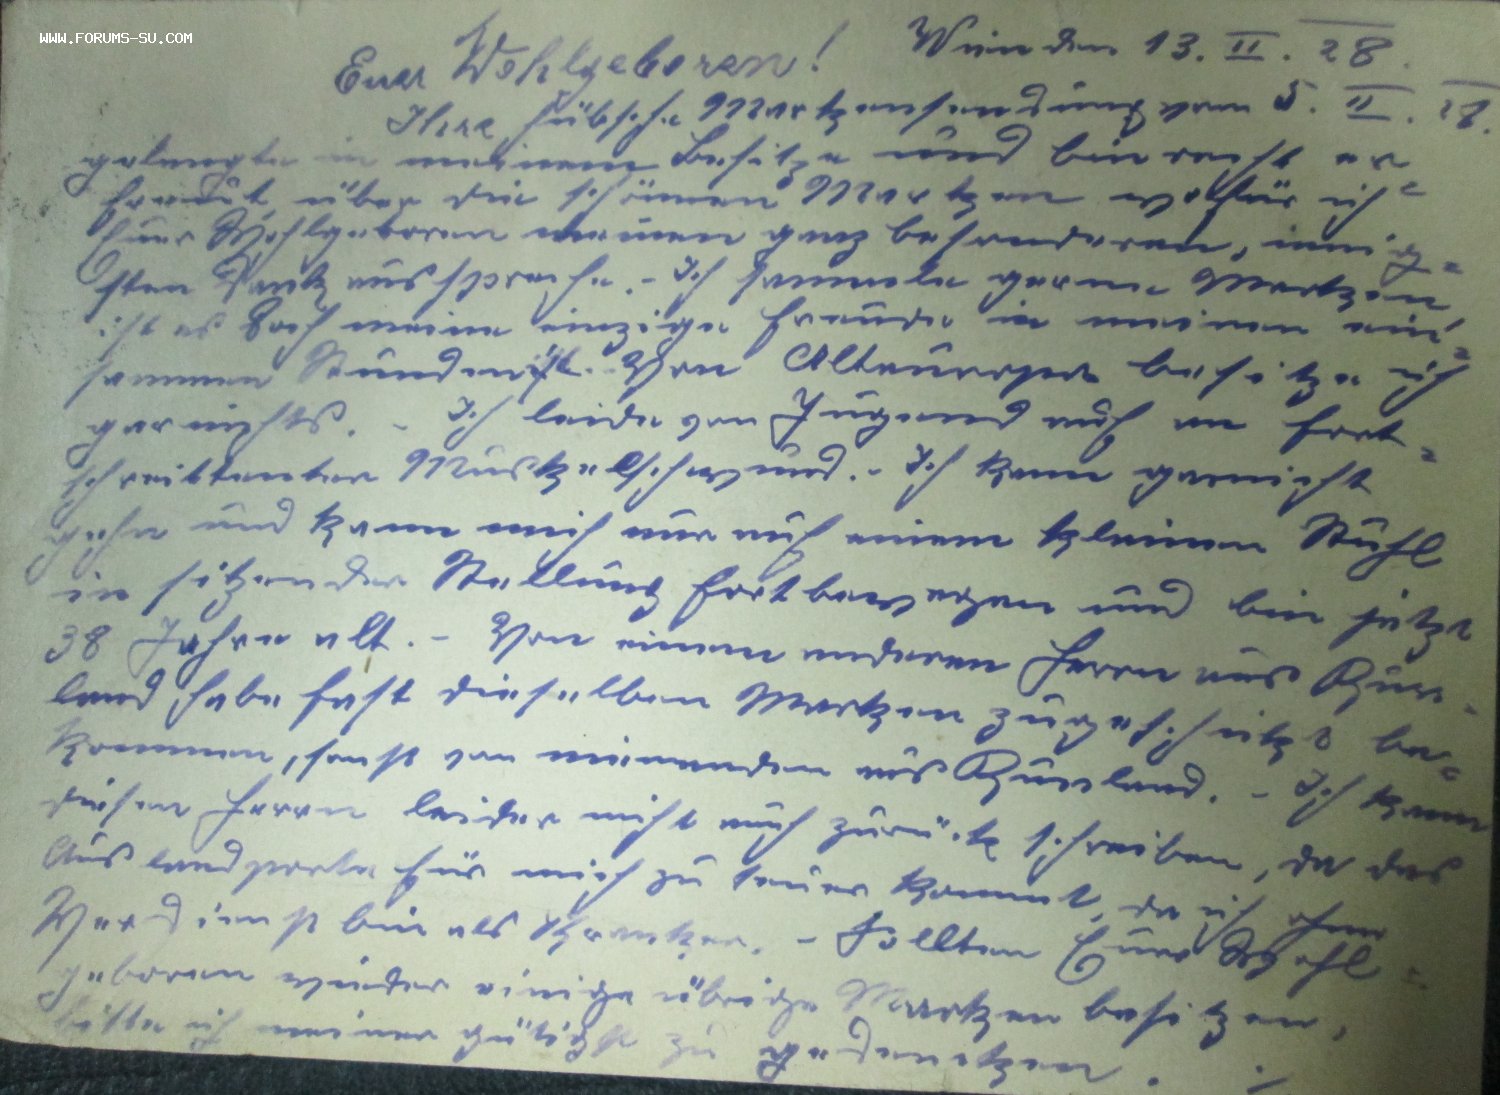 WWW.FORUMS-SU.COM
Wien den 13. II. 28.
Euer Wohlgeboren!
Ihre hübsche Markensendung vom 5. II. 28.
gelangte in meinem Besitze und bin recht er-
freut über die schönen Marken wofür ich
Euer Wohlgeboren meinen ganz besonderen, innig-
sten Dank ausspreche. - Ich sammele gerne Marken
ist es doch meine einzige Freude in meinen ein-
samen Stunden. Von Alteuropa besitze ich
garnichts. - Ich leide von Jugend auf an fort-
schreittenter Muskelschwund. - Ich kann garnicht
gehn und kann mich nur auf einem kleinen Stuhl
in sitzender Stellung fortbewegen und bin jetzt
38 Jahre alt. - Von einem anderen Herrn aus Russ-
land habe fast dieselben Marken zugeschickt be-
kommen, sonst von niemanden aus Russland. - Ich kann
diesen Herrn leider nicht auch zurück schreiben, da das
Auslandporto für mich zu teuer kommt, da ich ohne
Verdienst bin als Kranker. - Sollten Euer Wohl-
geboren wieder einige übrige Marken besitzen,
bitte ich meiner gütigst zu gedenken.